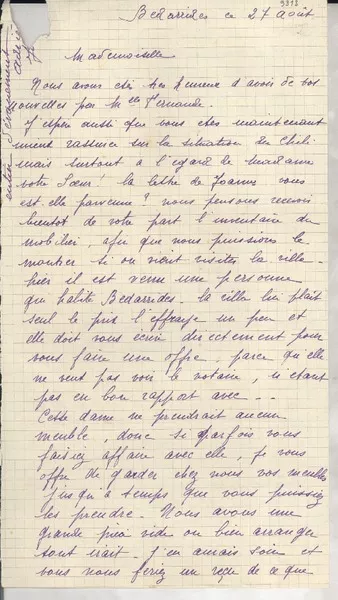 9393
Bedarrides ce 27 Août
Mademoiselle
Nous avons étés très heureux d'avoir de vos
nouvelles par Melle Fernande.
J'espère aussi que vous êtes maintenant
mieux rassurée sur la situation du Chili
mais surtout à l'égard de Madame
votre Sœur! la lettre de Joanny vous
est-elle parvenue? nous pensons recevoir
bientôt de votre part l'inventaire du
mobilier, afin que nous puissions le
montrer si on vient visiter la villa.
hier il est venu une personne
qui habite Bedarrides. la villa lui plait
seul le prix l'effraye un peu et
elle doit vous écrire directement pour
vous faire une offre. parce qu'elle
ne veut pas voir le notaire, n'étant
pas en bon rapport avec...
Cette dame ne prendrait aucun
meuble, donc si parfois vous
faisiez affaire avec elle, je vous
offre de garder chez nous vos meubles
jusqu'à temps que vous puissiez
les prendre. Nous avons une
grande pièce vide ou bien arranger
tout irait. J'en aurais soin et
vous nous feriez un reçu de ce que